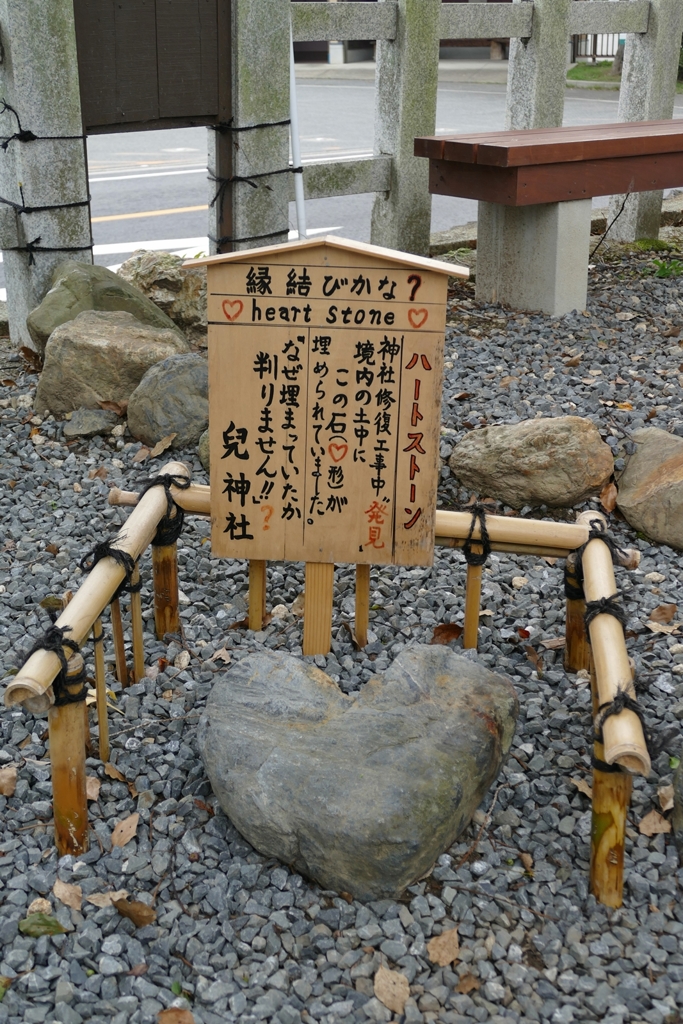 縁結びかな?
♡heart stone♡
ハートストーン
神社修復工事中"発見"
境内の土中に
この石(♡形)が
埋められていました。
"なぜ埋まっていたか
判りません!!"?
兒神社